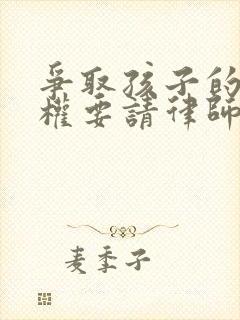 爭取孩子的
權要請律師
麦季子